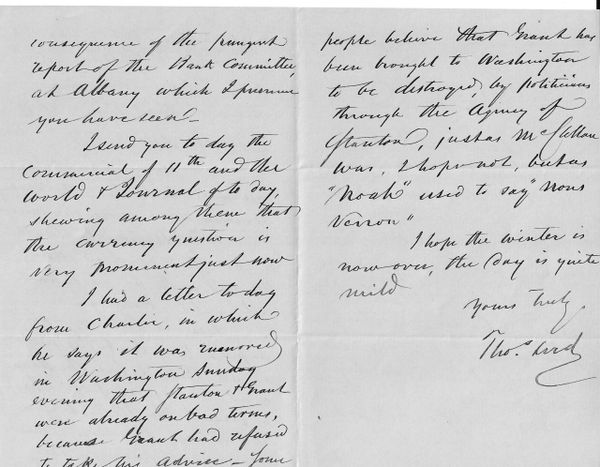 consequence of the pungent
report of the Bank Committee
at Albany which I presume
you have seen—
I send you to day the
Commercial of 11th and the
World & Journal of to day,
shewing among them that
the currency question is
very prominent just now
I had a letter to day
from Charlie, in which
he says it was rumored
in Washington Sunday
evening that Stanton & Grant
were already on bad terms,
because Grant had refused
to take his advice — Some
people believe that Grant has
been brought to Washington
to be destroyed by politicians
through the Agency of
Stanton, just as McClellan
was, I hope not, but as
"Noah" used to say "nous
verron"
I hope the winter is
now over, the day is quite
mild
Yours truly,
Thos.